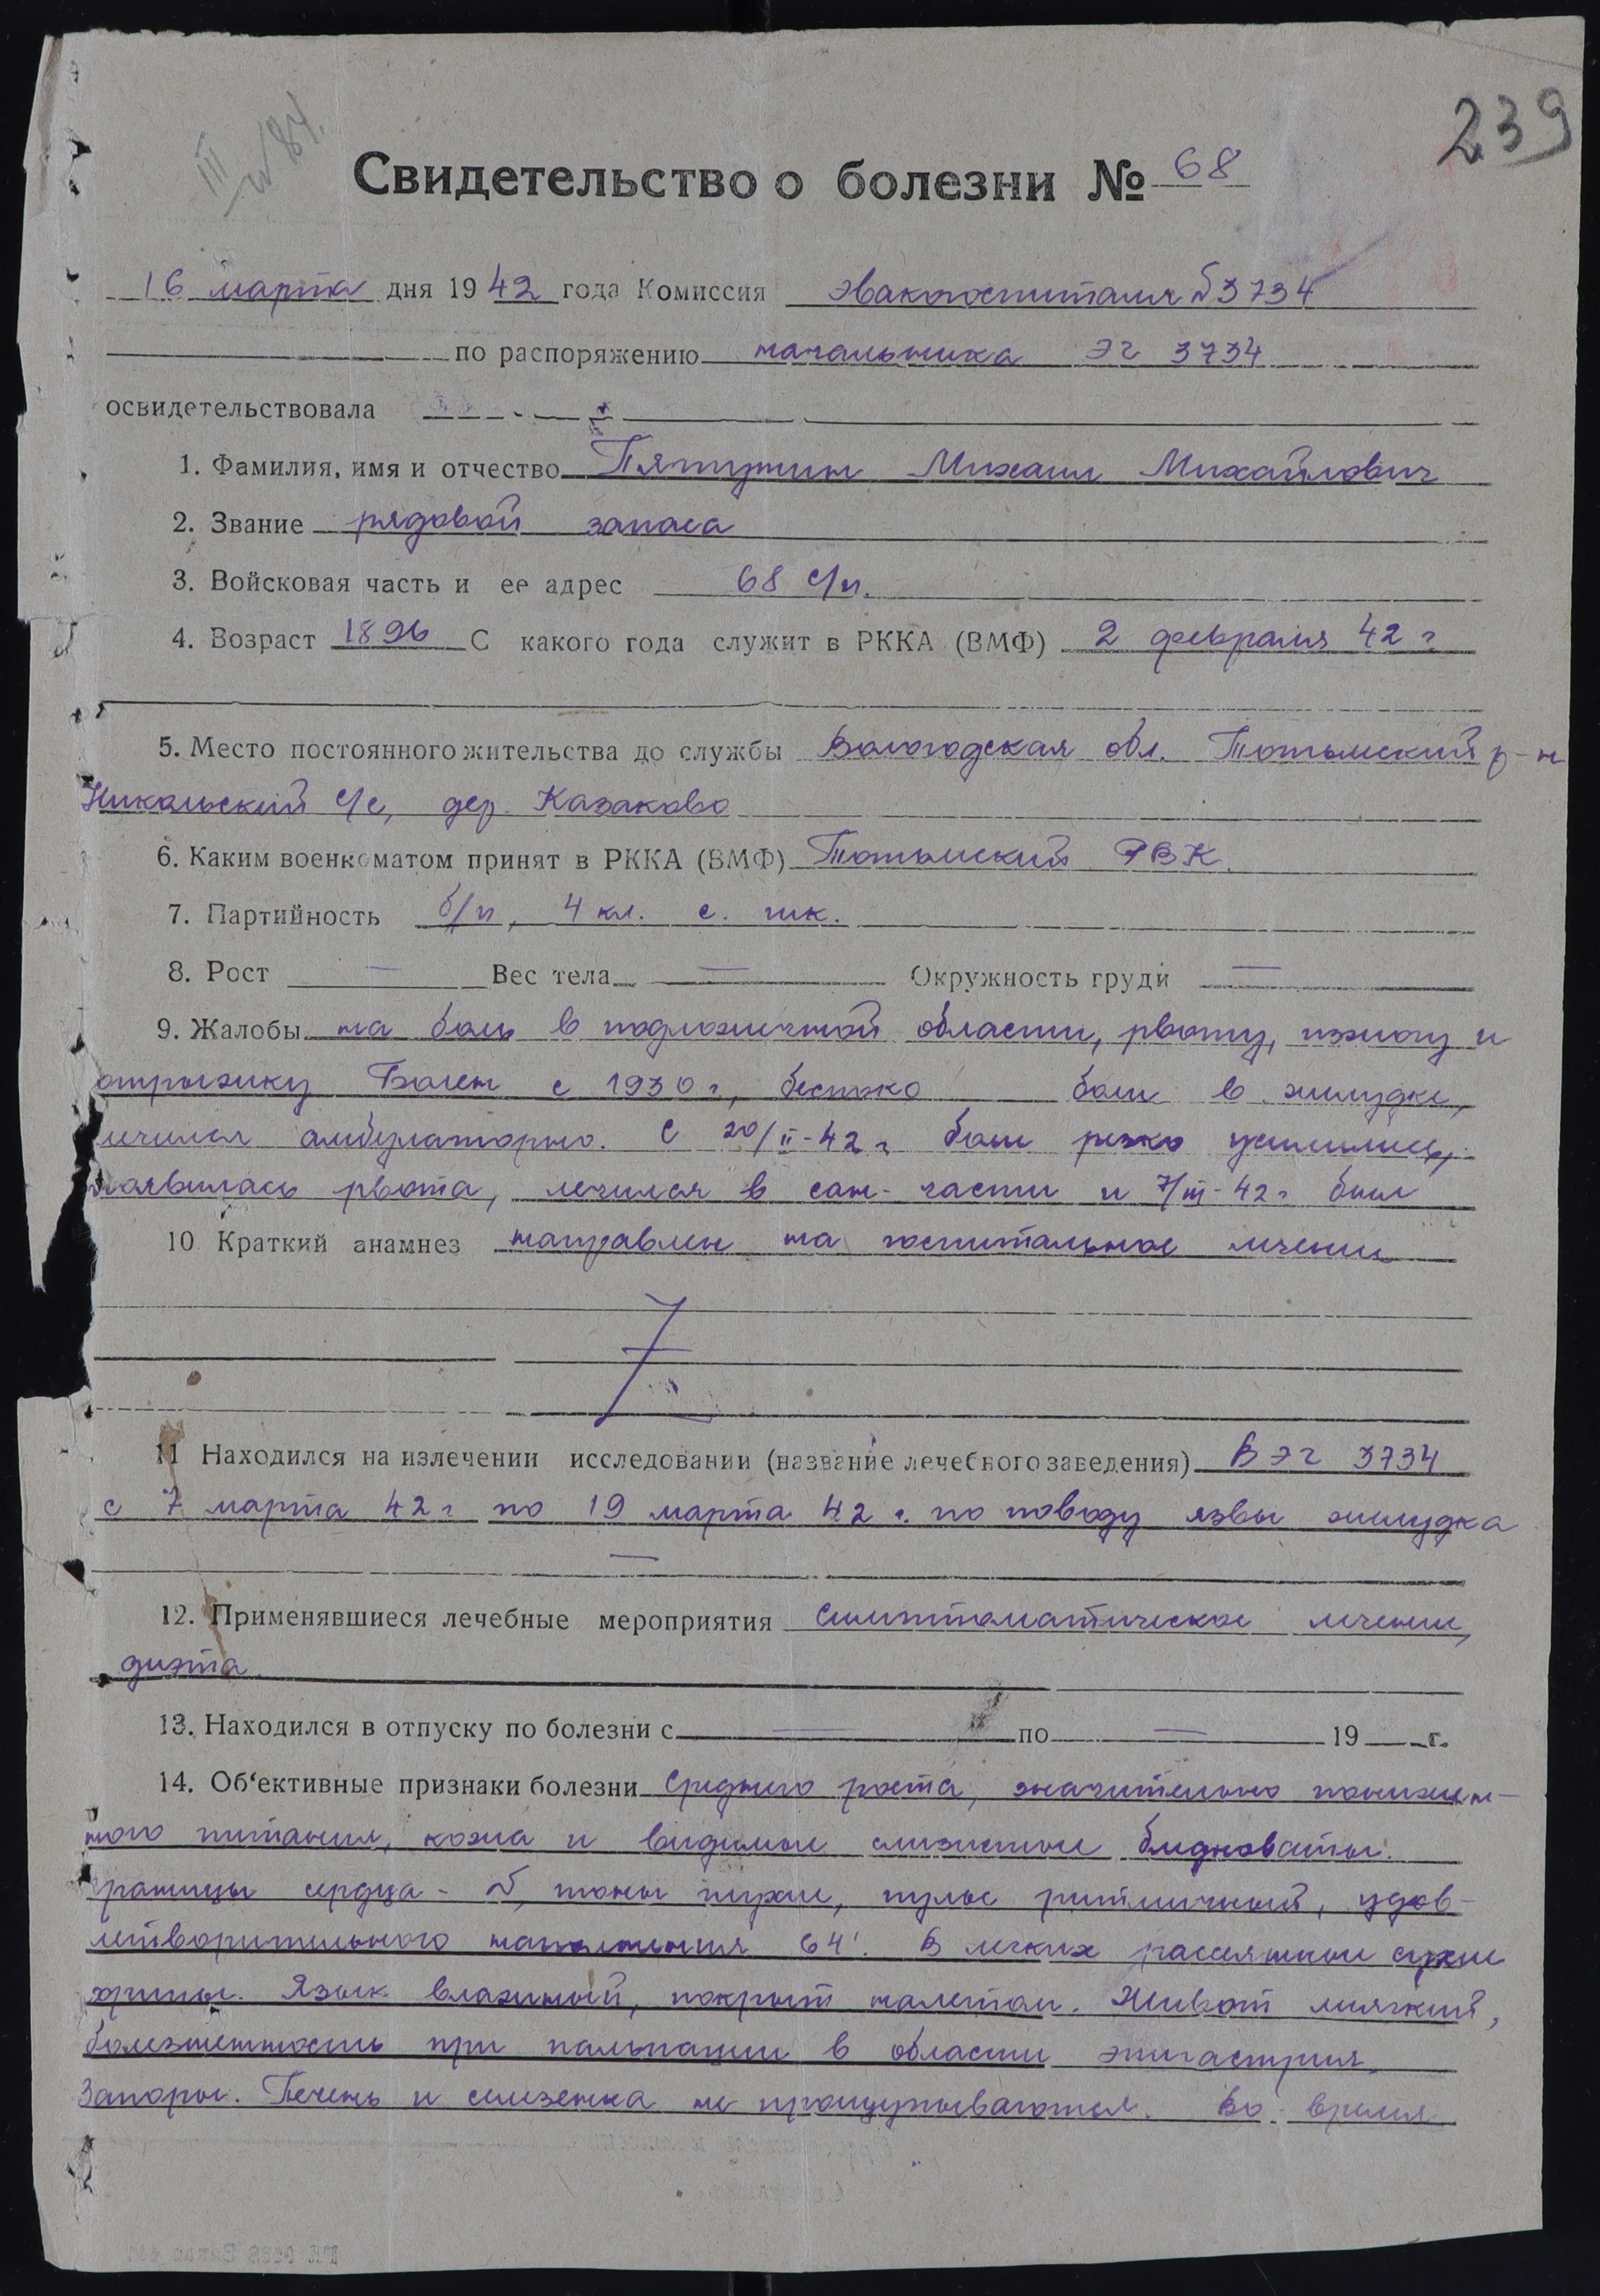 239
III
Свидетельство о болезни № 68
16 марта дня 1942 года Комиссия эвакогоспиталя № 3734
по распоряжению начальника ЭГ 3734
освидетельствовала
1. Фамилия, имя и отчество Пятушин Михаил Михайлович
2. Звание рядовой запаса
3. Войсковая часть и ее адрес 68 с/п.
4. Возраст 1896 С какого года служит в РККА (ВМФ) 2 февраля 42 г
5. Место постоянного жительства до службы Вологодская обл. Тотьмский р-н
Никольский с/с, дер. Казаково
6. Каким военкоматом принят в РККА (ВМФ) Тотьмский РВК.
7. Партийность б/п, 4 кл. с. шк.
8. Рост — Вес тела — Окружность груди —
9. Жалобы на боли в подложечной области, рвоту, изжогу и
отрыжку Болен с 1930 г, беспоко боли в желудке,
лечился амбулаторно. С 20/II-42 г боли резко усилились,
появилась рвота, лечился в сан-части и 7/III-42 г был
10 Краткий анамнез направлен на госпитальное лечение
11 Находился на излечении исследовании (название лечебного заведения) В ЭГ 3734
с 7 марта 42 г по 19 марта 42 г. по поводу язвы желудка
—
12. Применявшиеся лечебные мероприятия симптоматическое лечение,
диэта
13. Находился в отпуску по болезни с — по — 19 г.
14. Об‘ективные признаки болезни Среднего роста, значительно понижен-
ного питания, кожа и видимые слизистые бледноваты.
Границы сердца - N, тоны глухие, пульс ритмичный, удов-
летворительного наполнения 64'. В легких рассеянные сухие
хрипы. Язык влажный, покрыт налетом. Живот мягкий,
болезненность при пальпации в области эпигастрия.
Запоры. Печень и селезенка не прощупываются. Во время